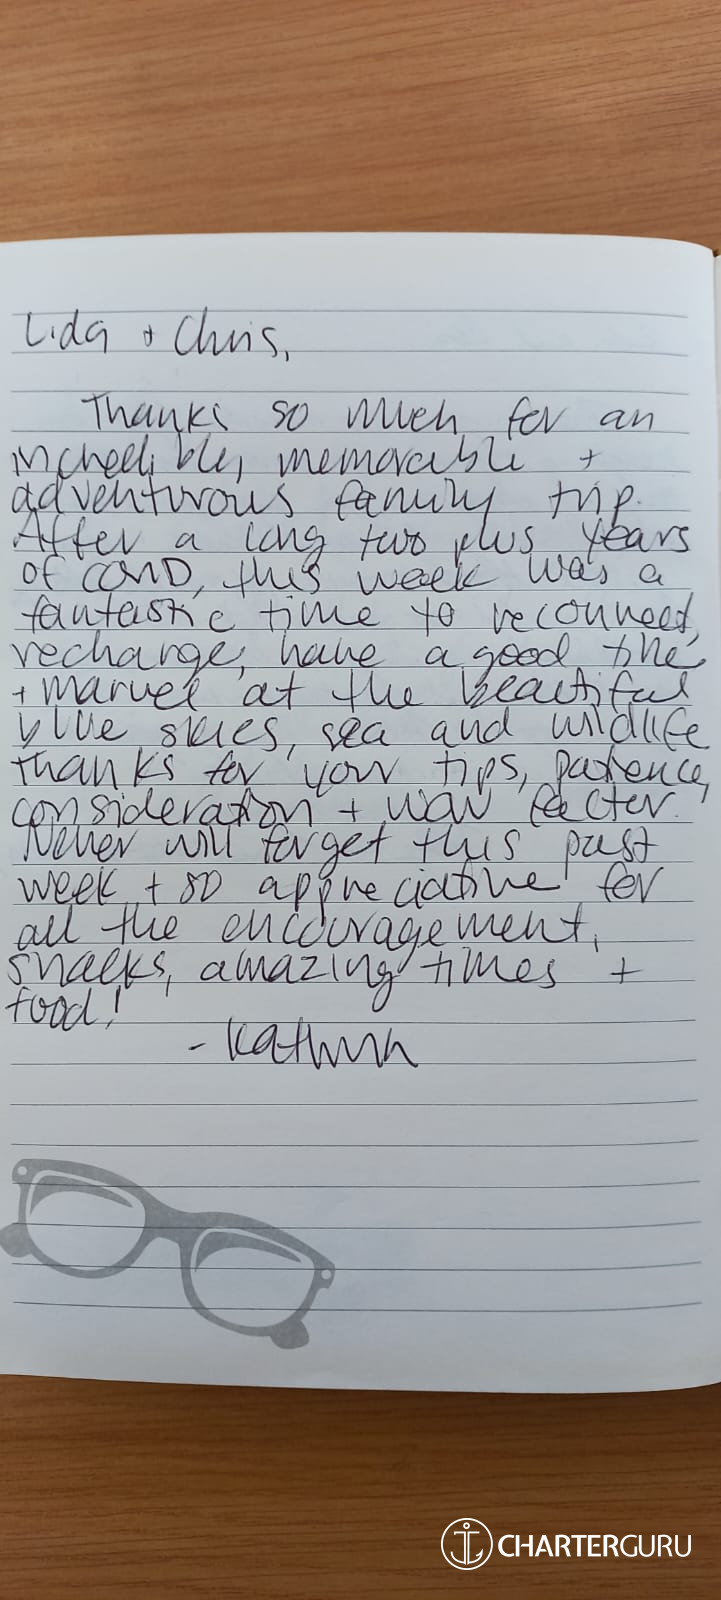 Lida + Chris,
Thanks so much for an
incredible, memorable +
adventurous family trip.
After a long two plus years
of COVID, this week was a
fantastic time to reconnect,
recharge, have a good time
+ marvel at the beautiful
blue skies, sea and wildlife.
Thanks for your tips, patience,
consideration + wow factor.
Never will forget this past
week + so appreciative for
all the encouragement,
snacks, amazing times +
food!
- Kathryn
CHARTERGURU